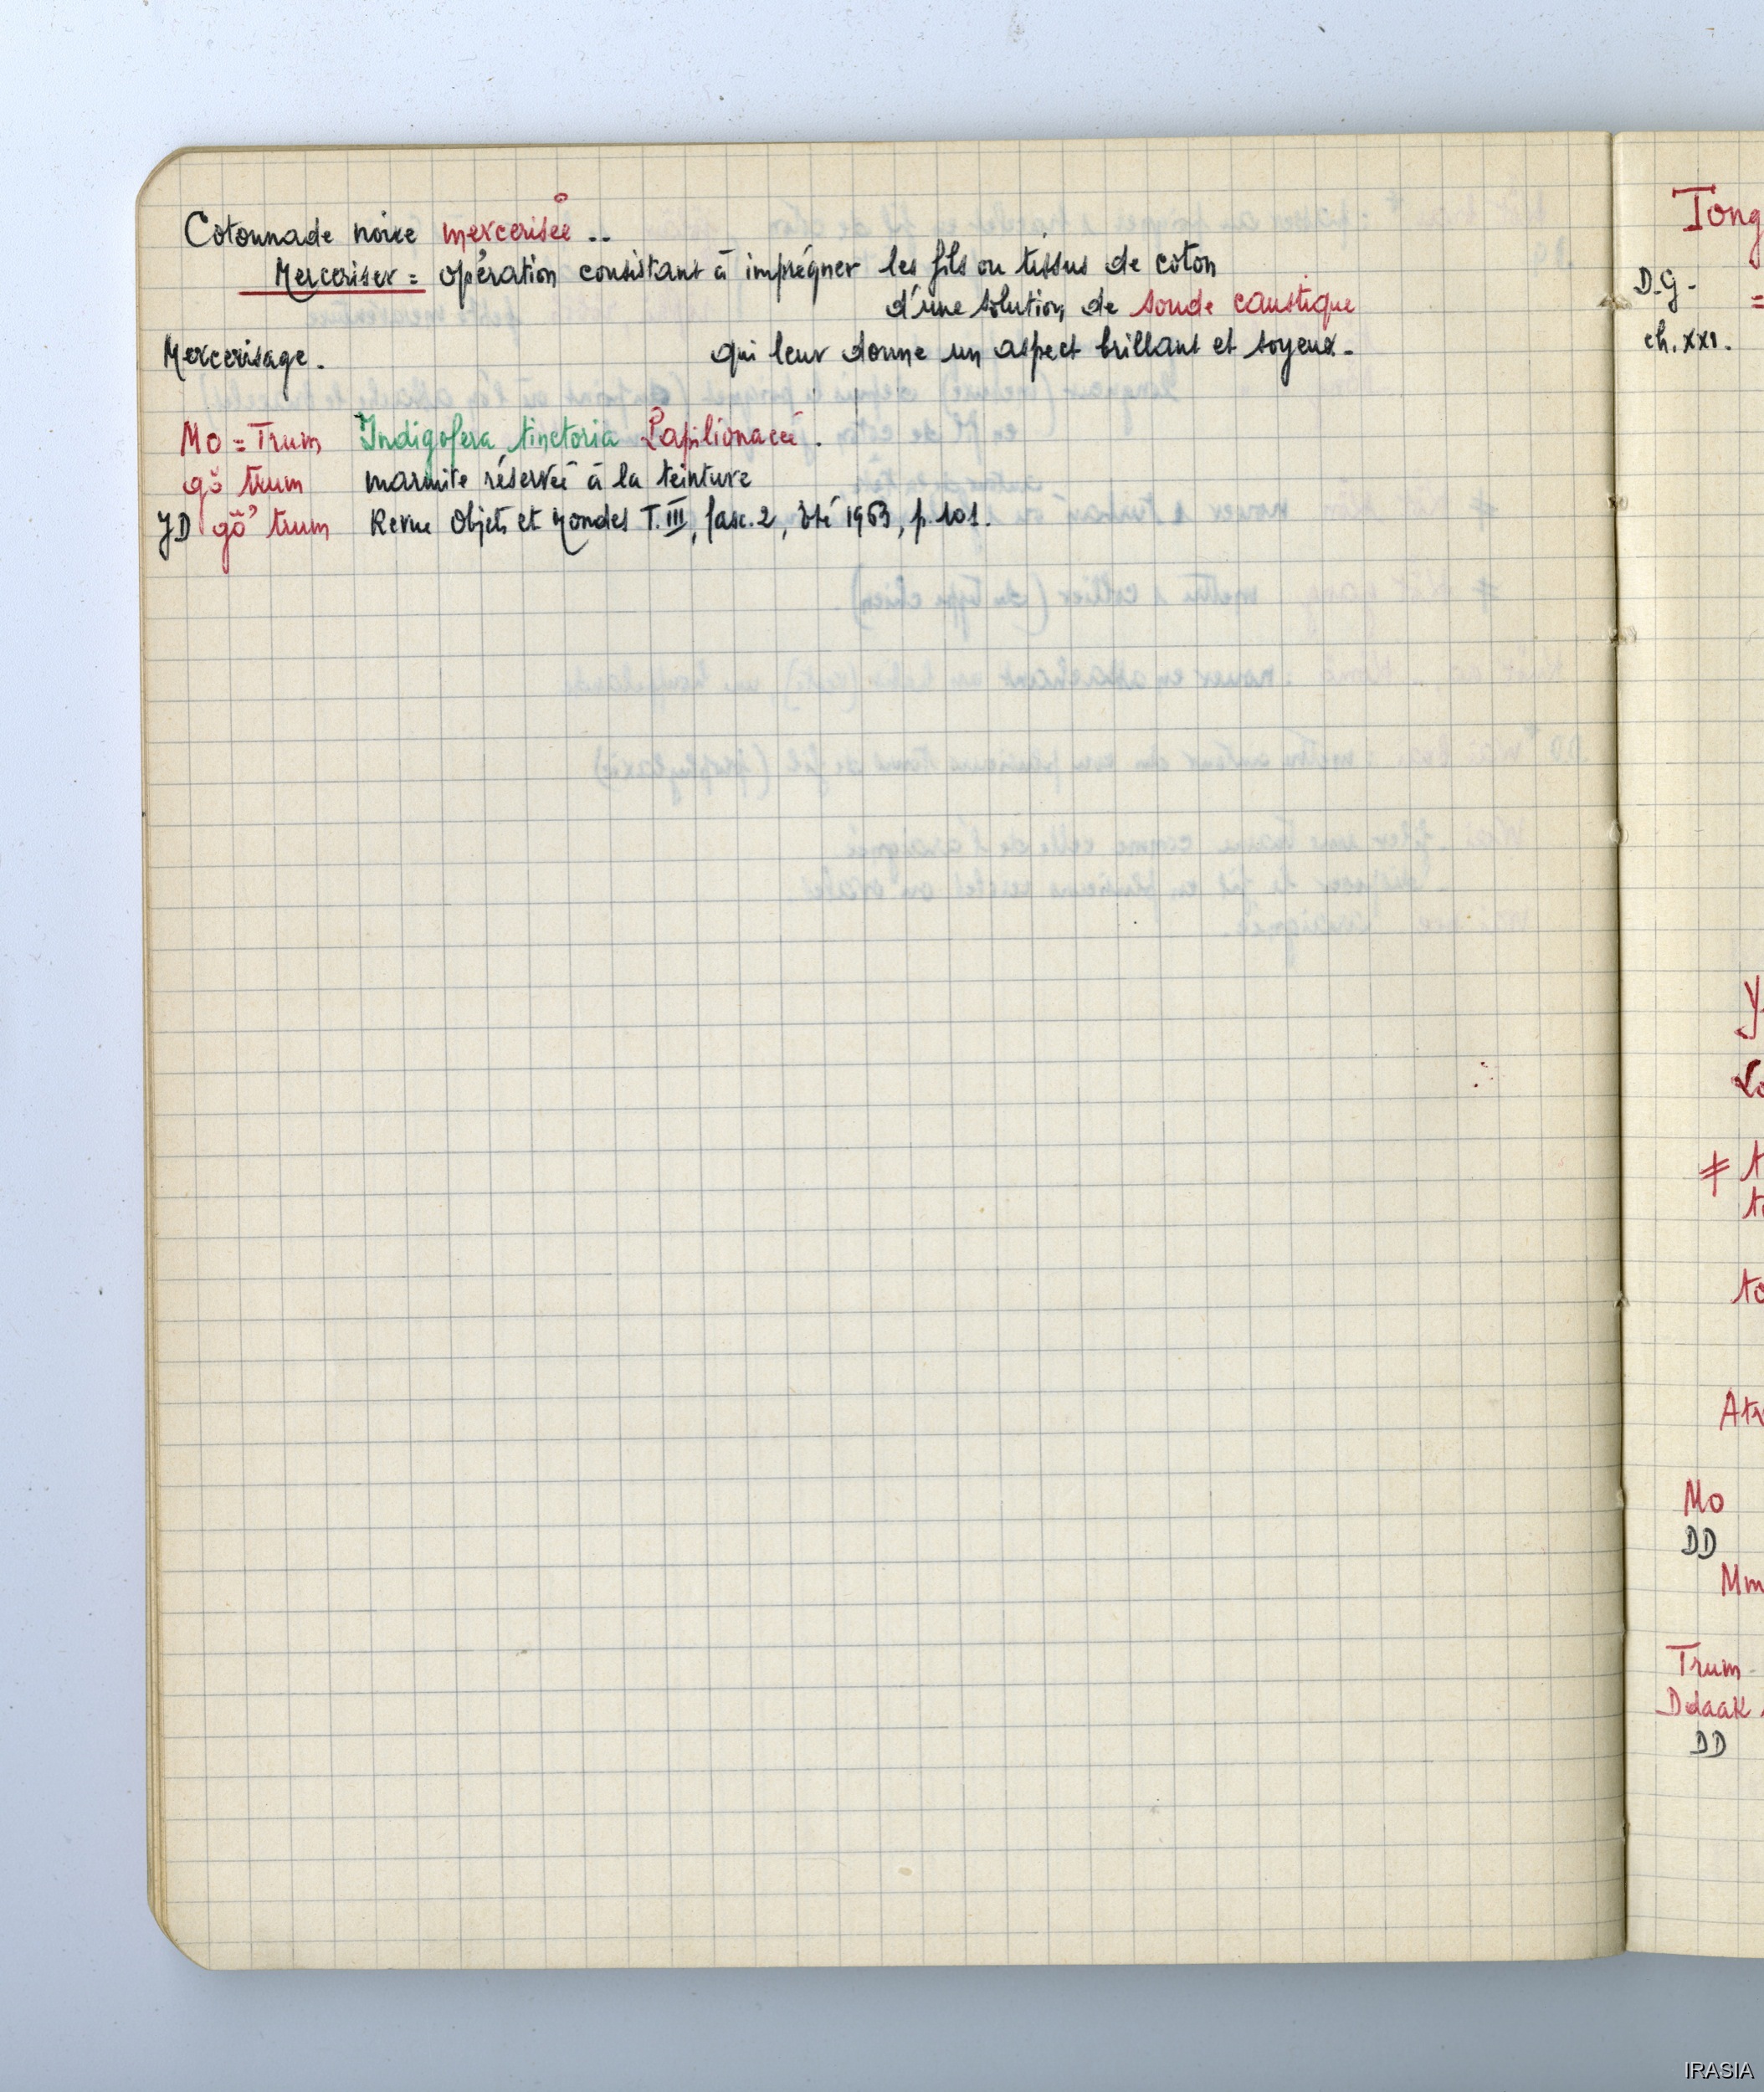 Cotonnade noire mercerisée ..
Merceriser = opération consistant à imprégner les fils ou tissus de coton
d'une solution de soude caustique
Mercerisage. qui leur donne un aspect brillant et soyeux.
Mo = Trum Indigofera tinctoria Papilionacée.
gŏ trum marmite réservée à la teinture
JD gŏ' trum Revue Objets et Mondes T. III, fasc. 2, été 1963, p. 101.
Tong
D.G. =
ch. XXI.
≠
Mo
DD
Trum
Ddaak
DD
IRASIA